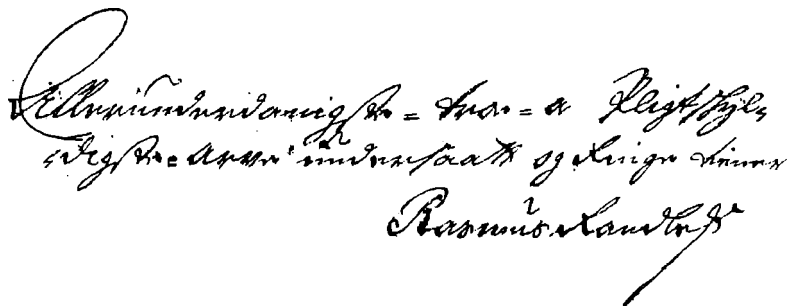 Allerunderdanigste = troe = o Pligtskÿl„
„digste = Arve undersaatt og Ringe tiener
Rasmus Randlef